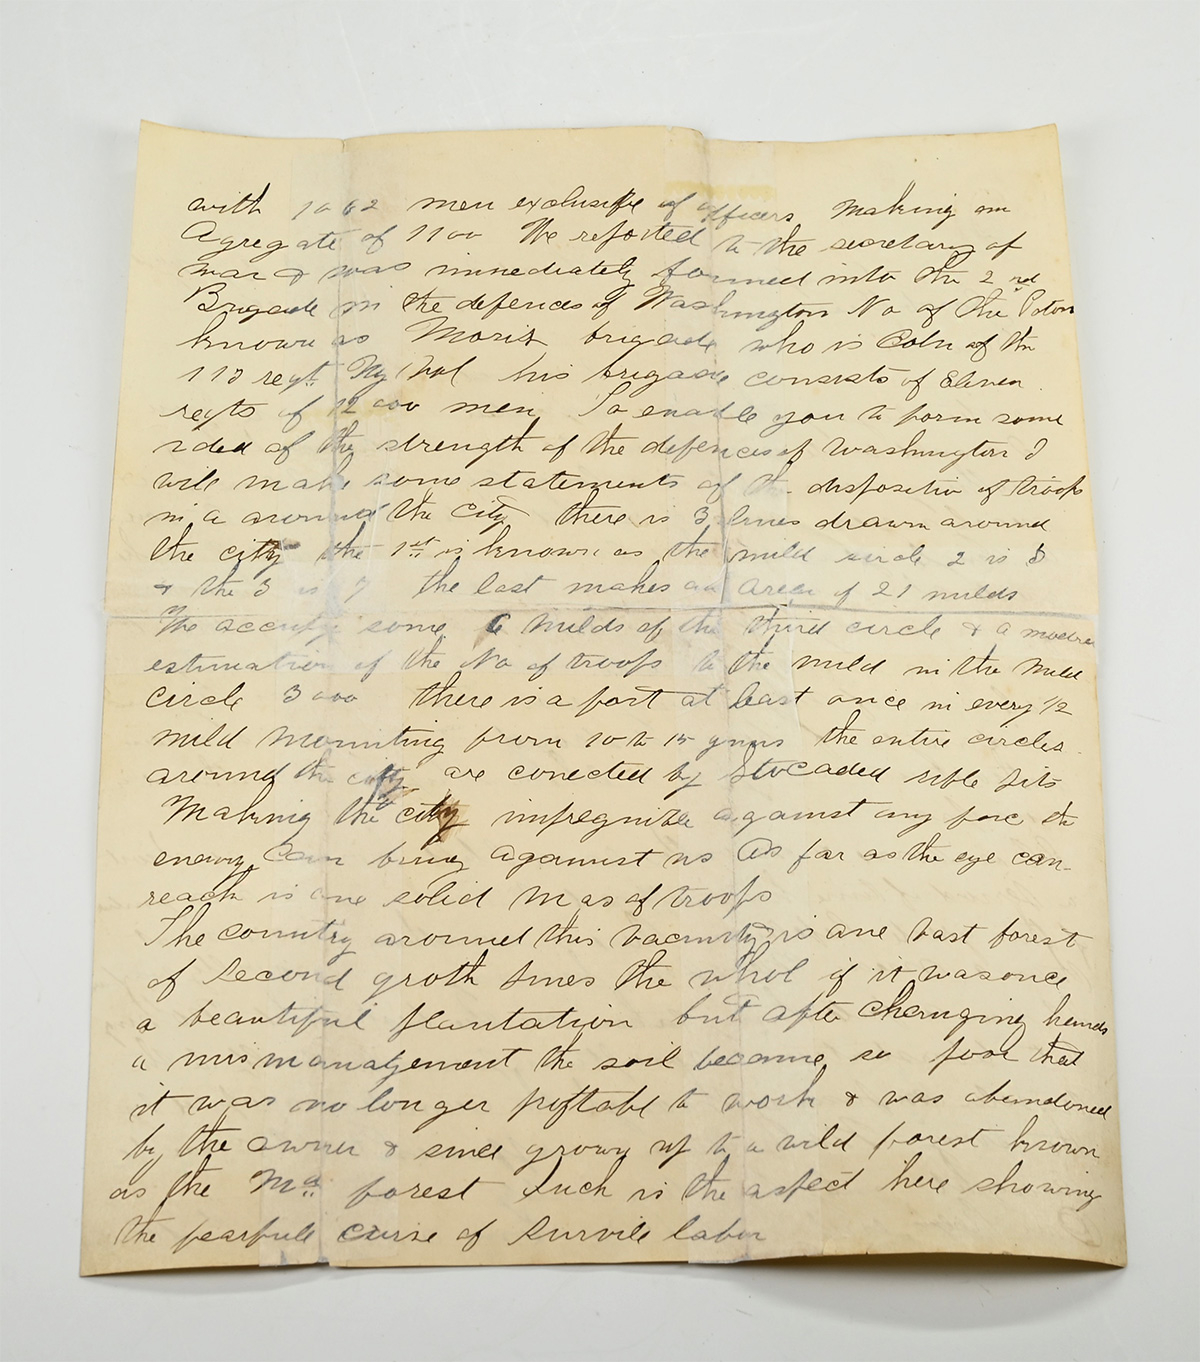 with 1062 men exclusife of officers making an
Agregate of 1100 We reported to the secretary of
war & was immediately formed into the 2nd
Brigade in the defences of Washington No of the Potom
known as Moris brigade who is Coln of the
113 regt. NY Vol his brigade consists of Eleven
regts of 12000 men, To enable you to form some
idea of the strength of the defences of Washington I
will make some statements of the dispositin of troops
in a around the city there is 3 lines drawn around
the city the 1st is known as the mild circle 2 is 3
& the 3 is 7 the last makes an area of 21 milds
We accupy some 6 milds of the third circle & a
estimation of the No of troops to the mild in the mild
circle 3000 there is a fort at least once in every 1/2
mild mounting from 10 to 15 guns the entire circles
around the city are conected by Stocaded rifle pits
Making the city impregnible against any forc the
enemy can bring against us As far as the eye can
reach is one solid mas of troops
The country around this vacinity is one vast forest
of second groth pines the whol if it was once
a beautiful plantation but after changing hands
a mismanagement the soil became so poor that
it was no longer proftabl to work & was abandoned
by the owner & since grown up to a wild forest known
as the Md. forest such is the aspect here showing
the fearfull curse of survile labor